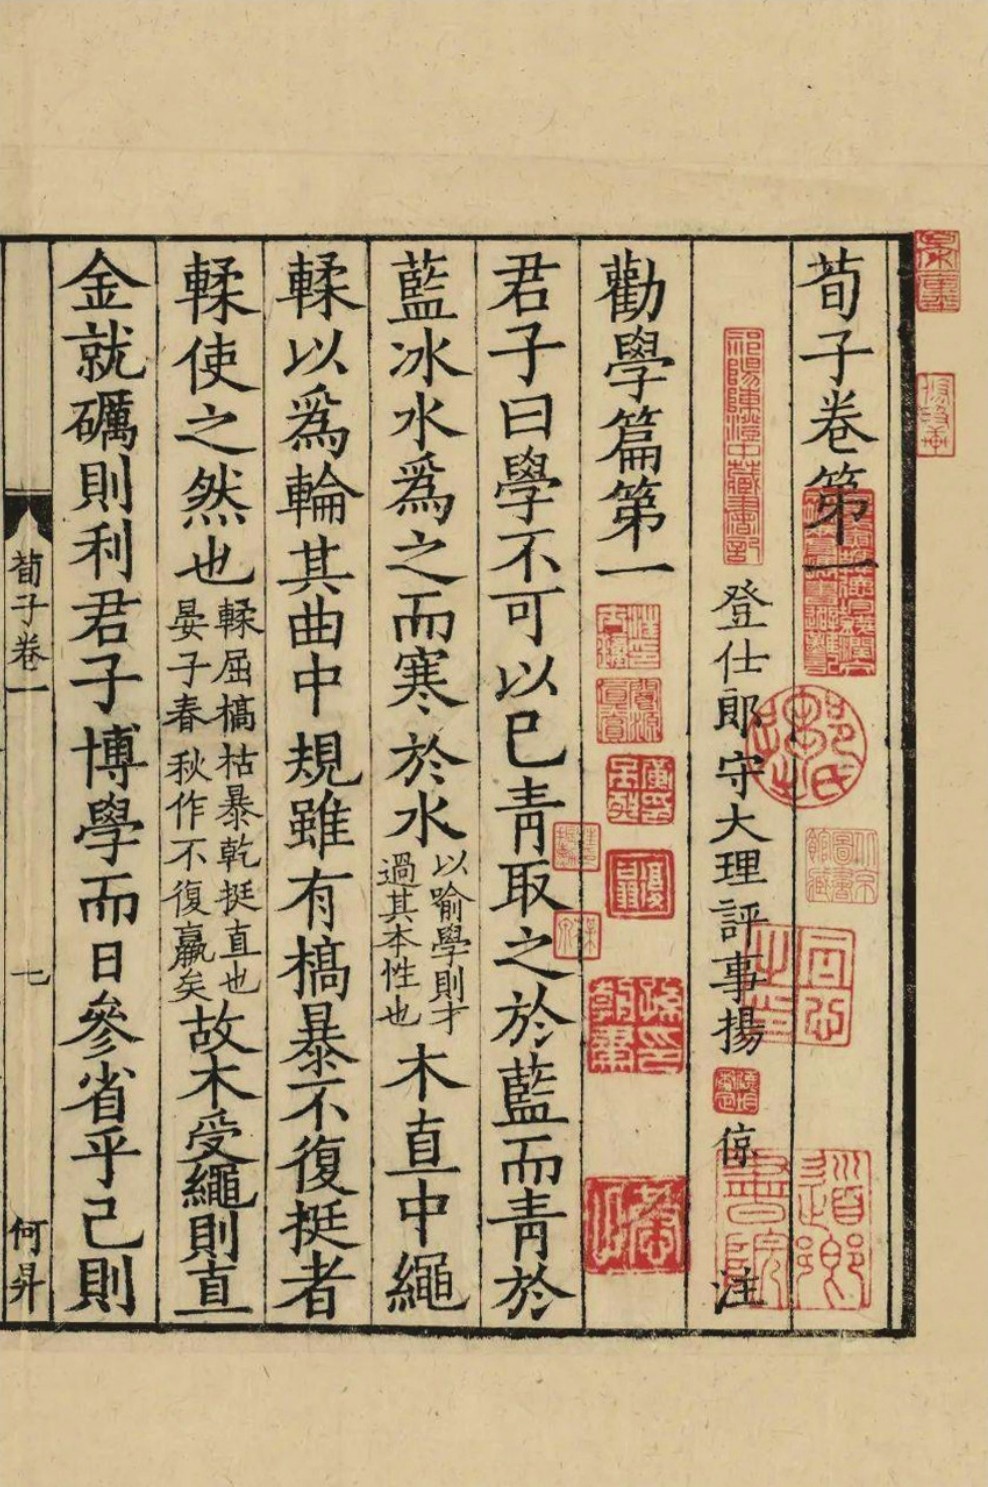 荀子卷第一
登仕郎守大理評事揚倞注
勸學篇第一
君子曰學不可以已青取之於藍而青於
藍冰水爲之而寒於水以喻學則才過其本性也木直中繩
輮以爲輪其曲中規雖有槁暴不復挺者
輮使之然也輮屈槁枯暴乾挺直也晏子春秋作不復贏矣故木受繩則直
金就礪則利君子博學而日參省乎己則
荀子卷一
七
何昇
祁陽陳澄中藏書記